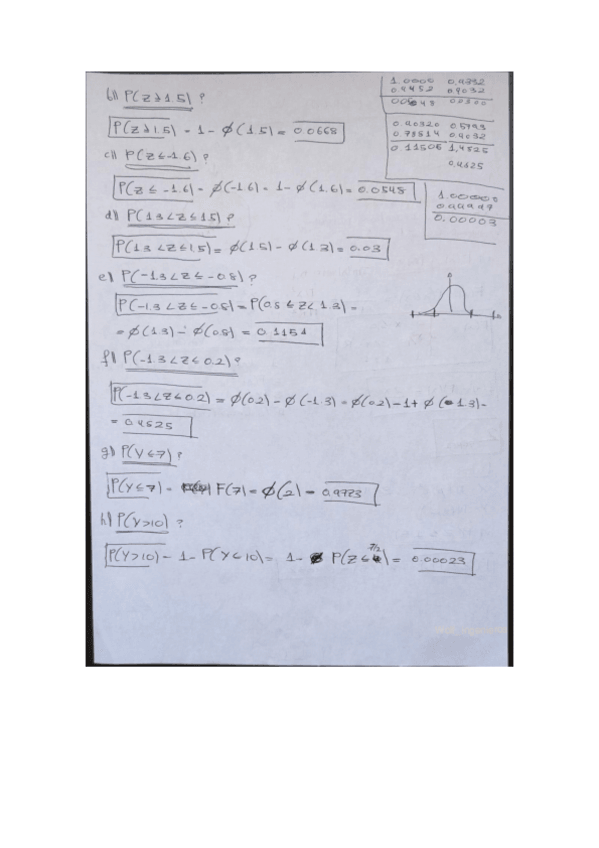 b) P(Z≥1.5)?
P(Z≥1.5) = 1 - ø(1.5) = 0.0668
c) P(Z≤-1.6)?
P(Z≤-1.6) = ø(-1.6) = 1 - ø(1.6) = 0.0548
d) P(1.3<Z≤1.5)?
P(1.3<Z≤1.5) = ø(1.5) - ø(1.3) = 0.03
e) P(-1.3<Z≤-0.8)?
P(-1.3<Z≤-0.8) = P(0.8≤Z<1.3) =
= ø(1.3) - ø(0.8) = 0.1151
f) P(-1.3<Z≤0.2)?
P(-1.3<Z≤0.2) = ø(0.2) - ø(-1.3) = ø(0.2) - 1 + ø(1.3) =
= 0.4825
g) P(Y≤7)?
P(Y≤7) = F(7) = ø(2) = 0.9773
h) P(Y>10)?
P(Y>10) = 1 - P(Y≤10) = 1 - P(Z≤7/2) = 0.00023
1.0000 0.9332
0.9032
0.90320 0.5793
0.78814 0.9032
0.11506 1,4825
0,4825
1.00000
0.00003
0